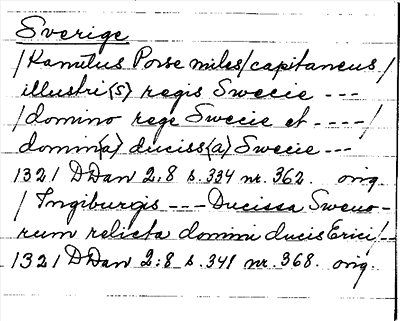 Sverige
/Kanutus Porse miles/capitaneus/
illustri{s} regis Swecie ---
/domino rege Swecie et ----/
domin{a} duciss{a} Swecie ---
1321 DDan 2:8 s. 334 nr. 362. orig.
/Ingiburgis --- Ducissa Sweno-
rum relicta domini ducis Erici/--
1321 DDan 2:8 s. 341 nr. 368. orig.